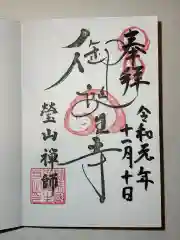 奉拝
令和元年
十一月十日
御誕生寺
瑩山禅師